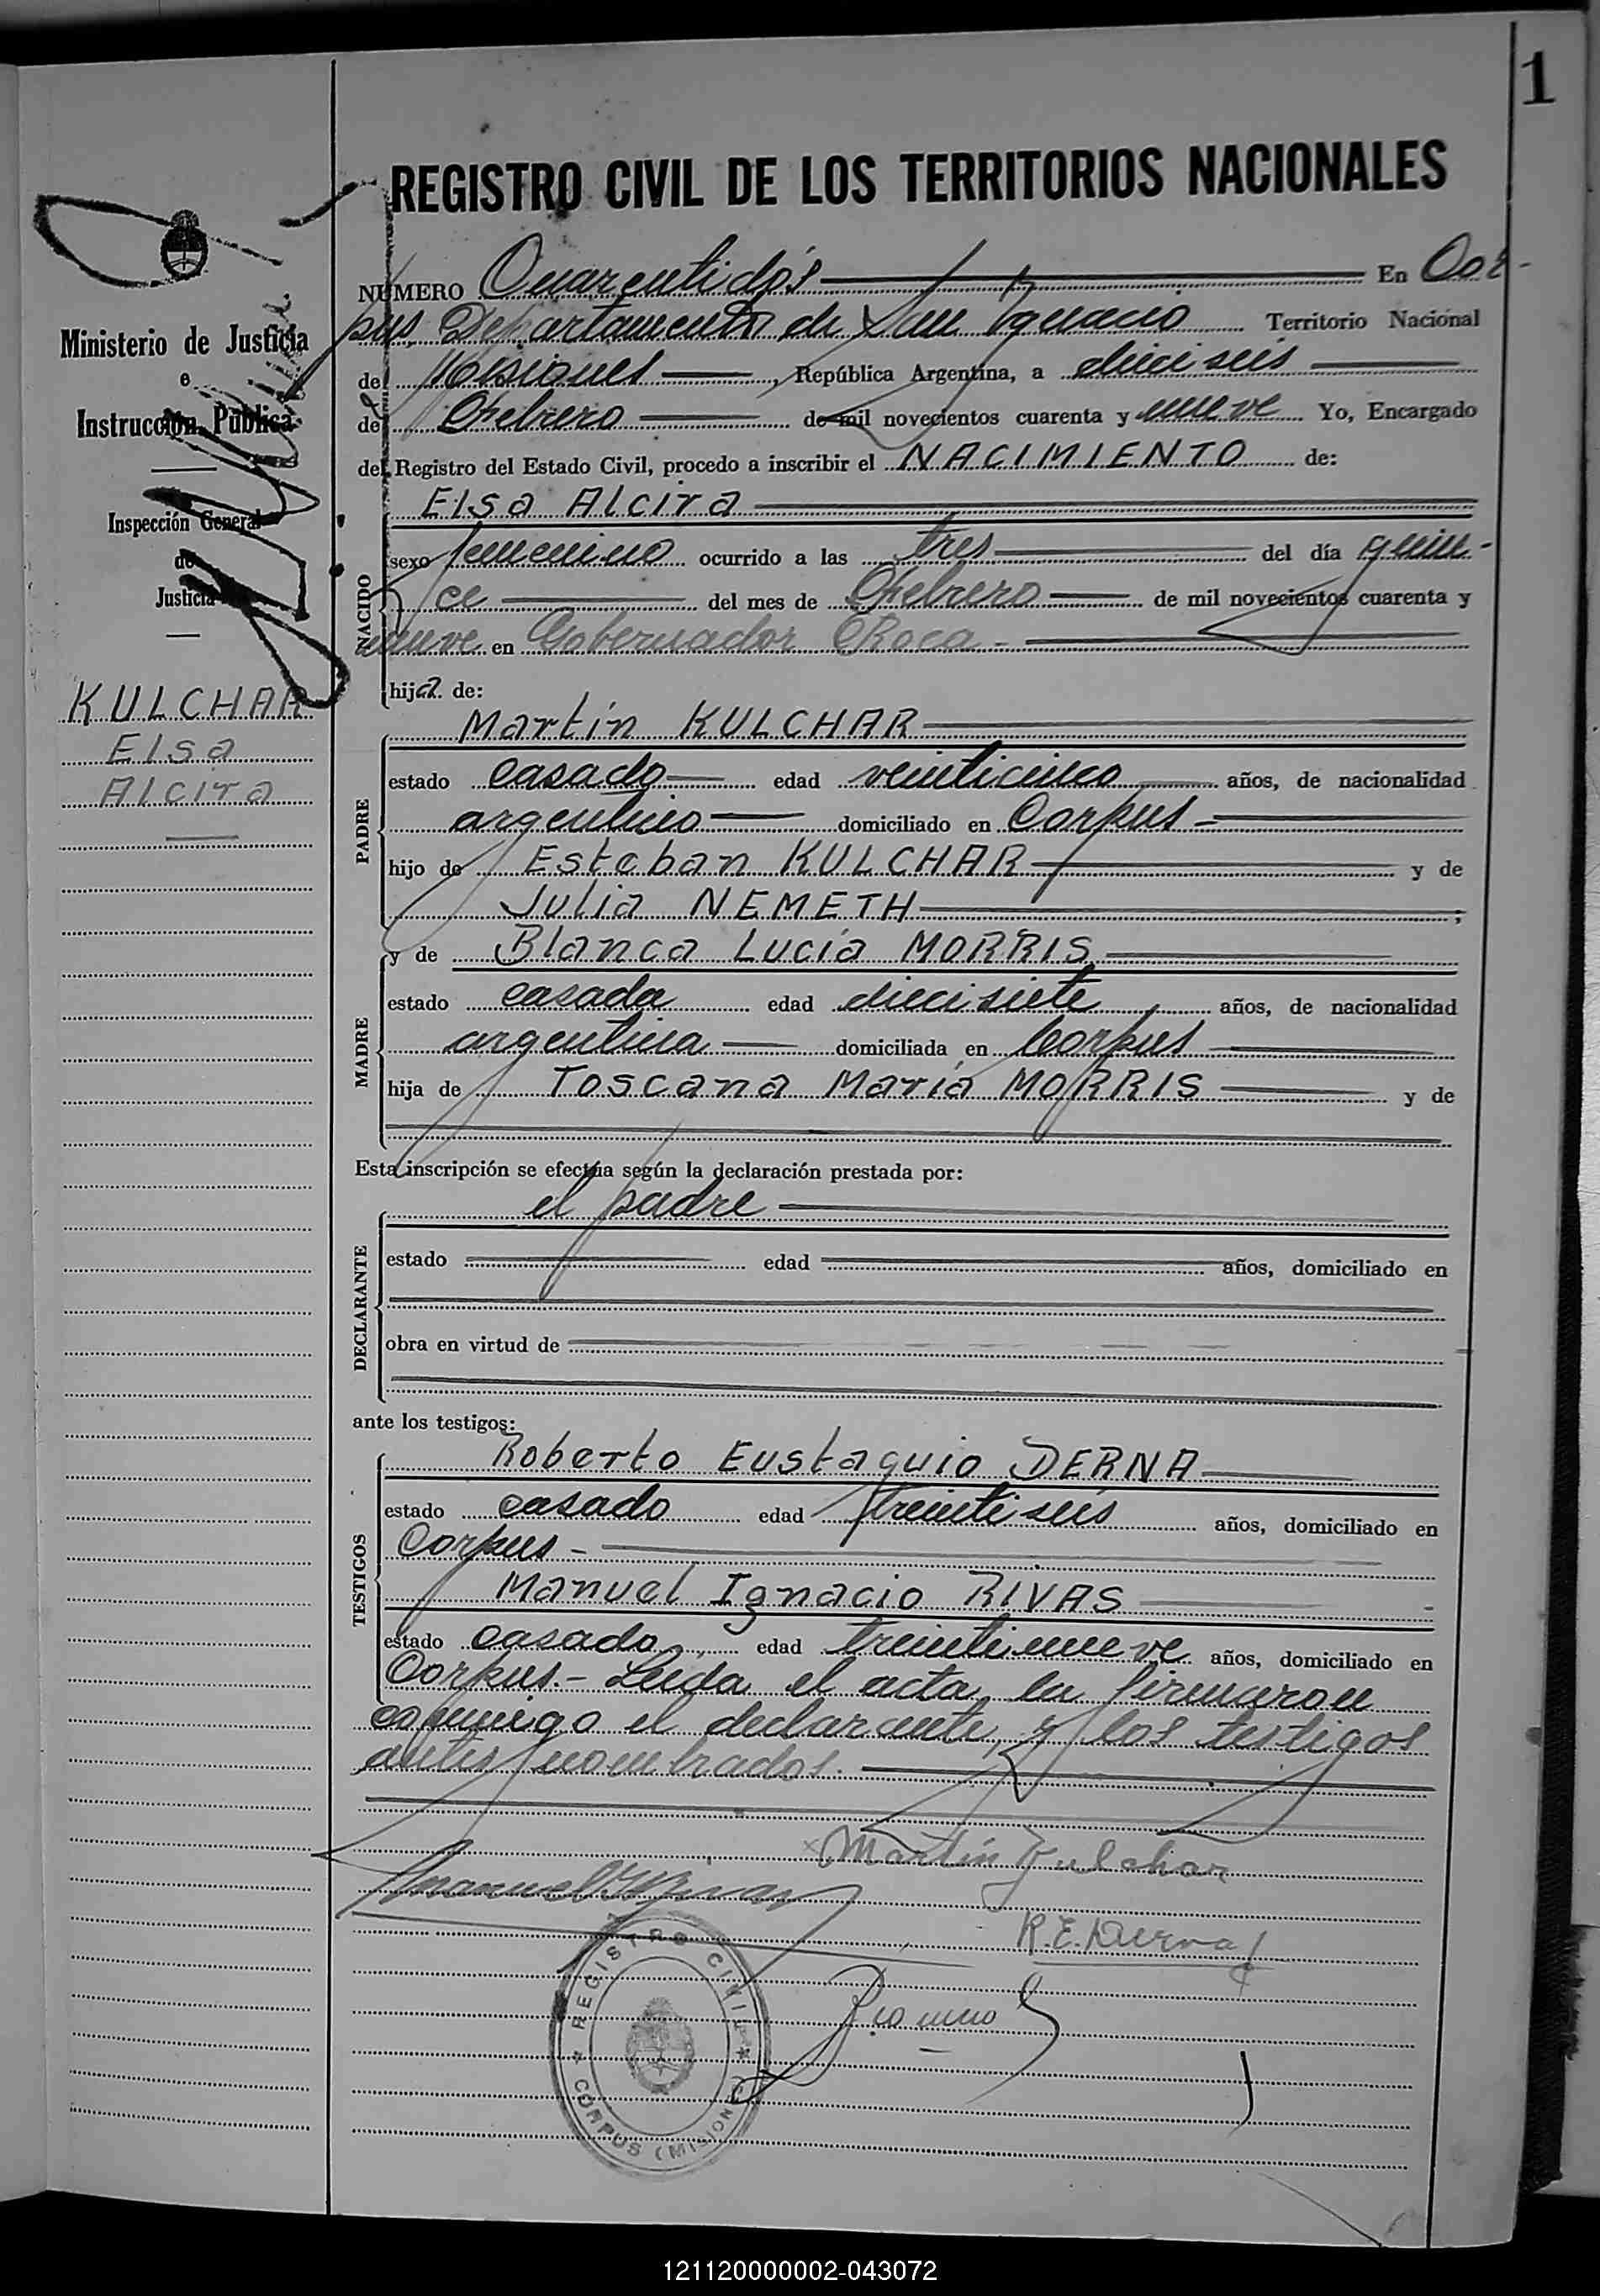 1
REGISTRO CIVIL DE LOS TERRITORIOS NACIONALES
NUMERO Cuarentidós En Cor-
pus, Departamento de San Ignacio Territorio Nacional
de Misiones, República Argentina, a dieciseis
de Febrero de mil novecientos cuarenta y nueve Yo, Encargado
del Registro del Estado Civil, procedo a inscribir el NACIMIENTO de:
Elsa Alcira
NACIDO
sexo femenino ocurrido a las tres del día quin-
ce del mes de Febrero de mil novecientos cuarenta y
nueve en Gobernador Roca.-
hija de:
PADRE
Martín KULCHAR
estado casado edad veinticinco años, de nacionalidad
argentino domiciliado en Corpus-
hijo de Esteban KULCHAR y de
Julia NEMETH;
MADRE
y de Blanca Lucía MORRIS
estado casada edad diecisiete años, de nacionalidad
argentina domiciliada en Corpus
hija de Toscana María MORRIS y de
Esta inscripción se efectúa según la declaración prestada por:
DECLARANTE
el padre
estado edad años, domiciliado en
obra en virtud de
ante los testigos:
TESTIGOS
Roberto Eustaquio DERNA
estado casado edad treintiseis años, domiciliado en
Corpus-
Manuel Ignacio RIVAS
estado casado, edad treintinueve años, domiciliado en
Corpus.- Leída el acta, la firmaron
conmigo el declarante, y los testigos
antes nombrados.
Martín Kulchar
Manuel I. Rivas
R.E. Derna
REGISTRO CIVIL
CORPUS (MISIONES)
Ministerio de Justicia
e
Instrucción Pública
Inspección General
de
Justicia
KULCHAR
Elsa
Alcira
121120000002-043072